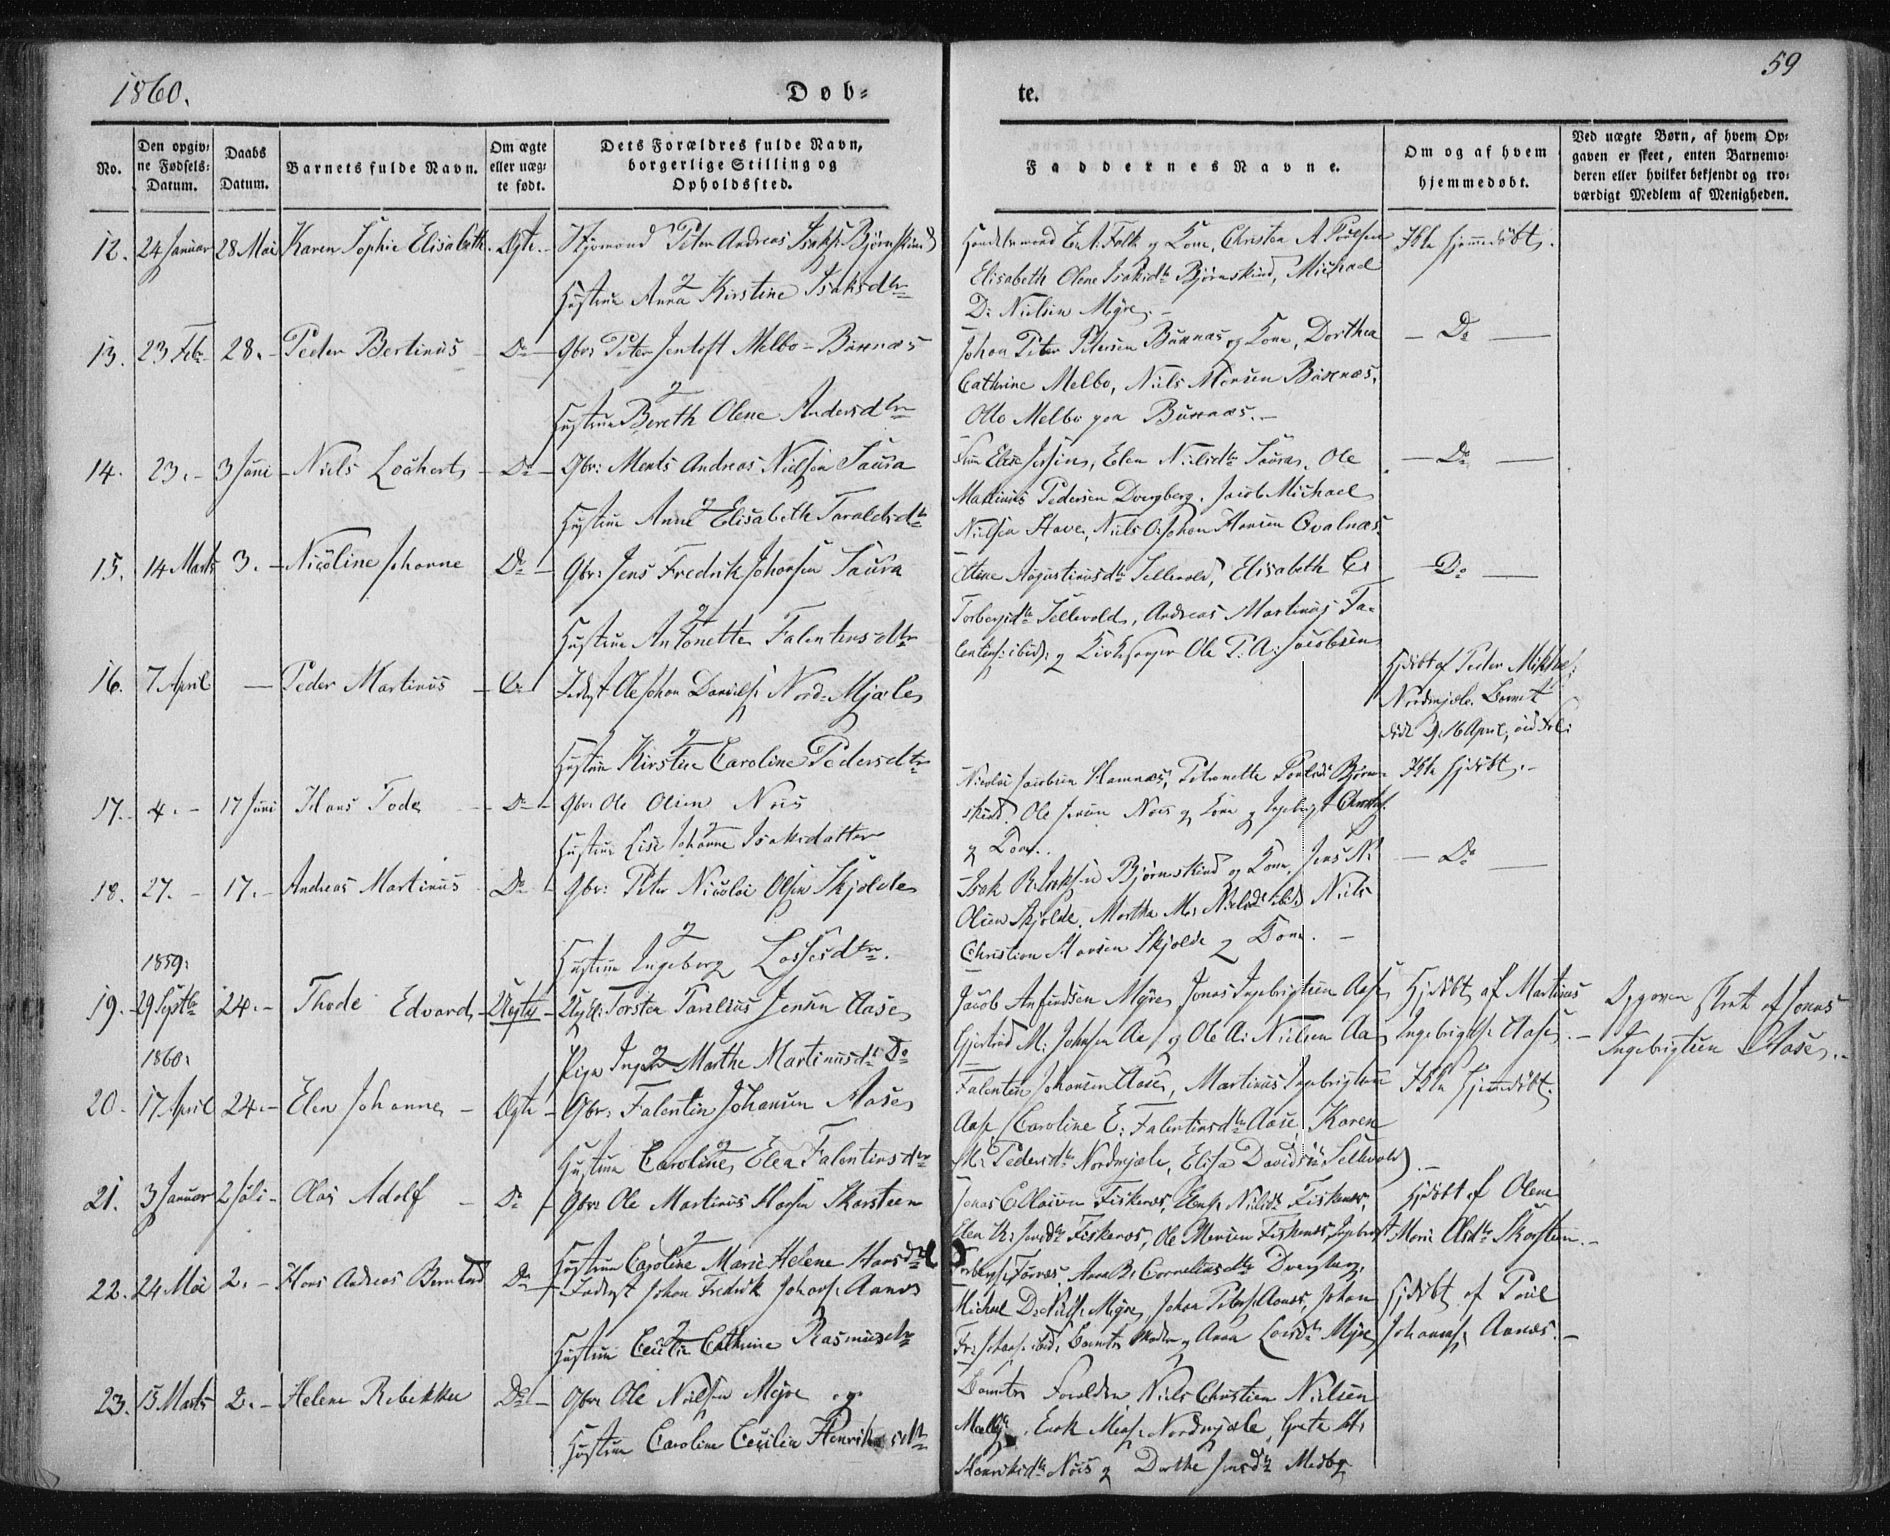 1860.
Døb=
te.
59
No.
Den opgiv=
ne Fødsels=
Datum.
Daabs
Datum.
Barnets fulde Navn.
Om ægte
eller uæg=
te født.
Dets Forældres fulde Navn,
borgerlige Stilling og
Opholdssted.
Faddernes Navne.
Om og af hvem
hjemmedøbt.
Ved uægte Børn, af hvem Op=
gaven er skeet, enten Barnemo=
deren eller hvilket bekjendt og tro=
værdigt Medlem af Menigheden.
12. 24 Januar 28 Mai Karen Sophie Elisabeth Ægte Peter Andreas Isaks. Bjørnskind
Hustrue Anna Kirstine Isaksdtr
Handelsmand E. A. Falk og Kone, Christen A. Poulsen
Elisabeth Olene Isaksdtr Bjørnskind, Michael
D. Nielsen Myre.
hjemmedøbt.
13. 23 Feb. 28. Peder Bertinus Do Gbr: Peter Jentoft Melbo - Buxnæs
&
Hustrue Bereth Olene Andersdtr
Johan Peter Petersen Buxnæs og Kone, Dorthea
Cathrine Melbo, Niels Monsen Buxnæs,
Otto Melbo paa Buxnæs.
Do
14. 23. 3 Juni Niels Lockert Do Gbr: Ments Andreas Nielsen Saura
&
Hustrue Anne Elisabeth Taraldsdtr
Elen Nielsdtr Saura, Ole
Martinus Pedersen Dvergberg, Jacob Michael
Nielsen Have, Niels O. Johan Hansen Qvalnæs.
Do
15. 14 Marts 3. Nicoline Johanne Do Gbr: Jens Fredrik Johansen Saura
&
Hustrue Antonette Falentinsdtr
Augustinusdtr Sellevold, Elisabeth C.
Torbergsdtr Sellevold, Andreas Martinus Fa-
lentins. ibid: og Kirkesanger Ole T. A. Jacobsen
Do
16. 7 April Peder Martinus Do Ole Johan Daniels. Nord-Mjæle
&
Hustrue Kirstine Caroline Pedersdtr
Hjdøbt af Peder Mikkel:
Nordmjæle. Barnet
døde d. 16 April,
17. 4. 17 Juni Hans Tode Do Gbr Ole Olsen Nois
&
Hustrue Lise Johanne Isaksdatter
Nicolai Jacobsen Hamnæs, Petronelle Bjørn-
skind, Ole Jensen Nois og Kone og Ingebrigt
og Kone.
hjdøbt.
18. 27. 17. Andreas Martinus Do Gbr: Peter Nicolai Olsen Skjolde
&
Hustrue Ingeborg Lassesdtr.
Isak R. Isaksen Bjørnskind og Kone, Jens N.
Olsen Skjolde, Martha M. Nielsdtr ibid, Niels
Christian Hansen Skjolde & Kone.
Do
1859:
19. 29 Septbr 24. Thode Edvard Uægte Ungk: Torsten Parelius Jensen Aase
&
Pige Inger Marthe Martinusdtr Do
Jacob Anfindsen Myre, Jonas Ingebrigtsen Aase,
Gjertrud M. Johnsen Aase og Ole A. Nielsen Aas
Hjdøbt af Martinus
Ingebrigts. Aase.
Opgaven skeet af Jonas
Ingebrigtsen Aase.
1860:
20. 17 April 24. Elen Johanne Ægte Gbr: Falentin Johansen Aase
&
Hustrue Caroline Elea Falentinsdtr
Falentin Johansen Aase, Martinus Ingebrigtsen
Aase, Caroline E. Falentinsdtr Aase, Karen
M. Pedersdtr Nordmjæle, Elisa Davidsdtr Sellevold.
hjemmedøbt.
21. 3 Januar 2 Juli Olai Adolf Do Gbr: Ole Martinus Hansen Skarsteen
&
Hustrue Caroline Marie Helene Hansdtr
Nielsdtr Fiskenæs,
Elen K. Jensdtr Fiskenæs, Ole Monsen Fiskenæs, Ingebrigt
Hjdøbt af Olene
Marie Olsdtr Skarsteen.
22. 24 Mai 2. Hans Andreas Do Johan Fredrik Johans. Aanes
&
Hustrue Cecilie Cathrine Rasmusdtr
Anna B. Corneliusdtr Dvergberg,
Michael D. Niels. Myre, Johan Peters. Aanæs, Johan
Fr. Johans. ibid, Barnets Moder og Anna Larsdtr Myre
Hjdøbt af Poul
Johannes. Aanæs.
23. 15 Marts 2. Helene Rebekka Do Gbr: Ole Nielsen Myre og
Hustrue Caroline Cecilia Henriksdtr
Barnets Forældre, Niels Christian Nielsen
Nordmjæle, Grete M.
Henriksdtr Nois & Dorthe Jensdtr Medby